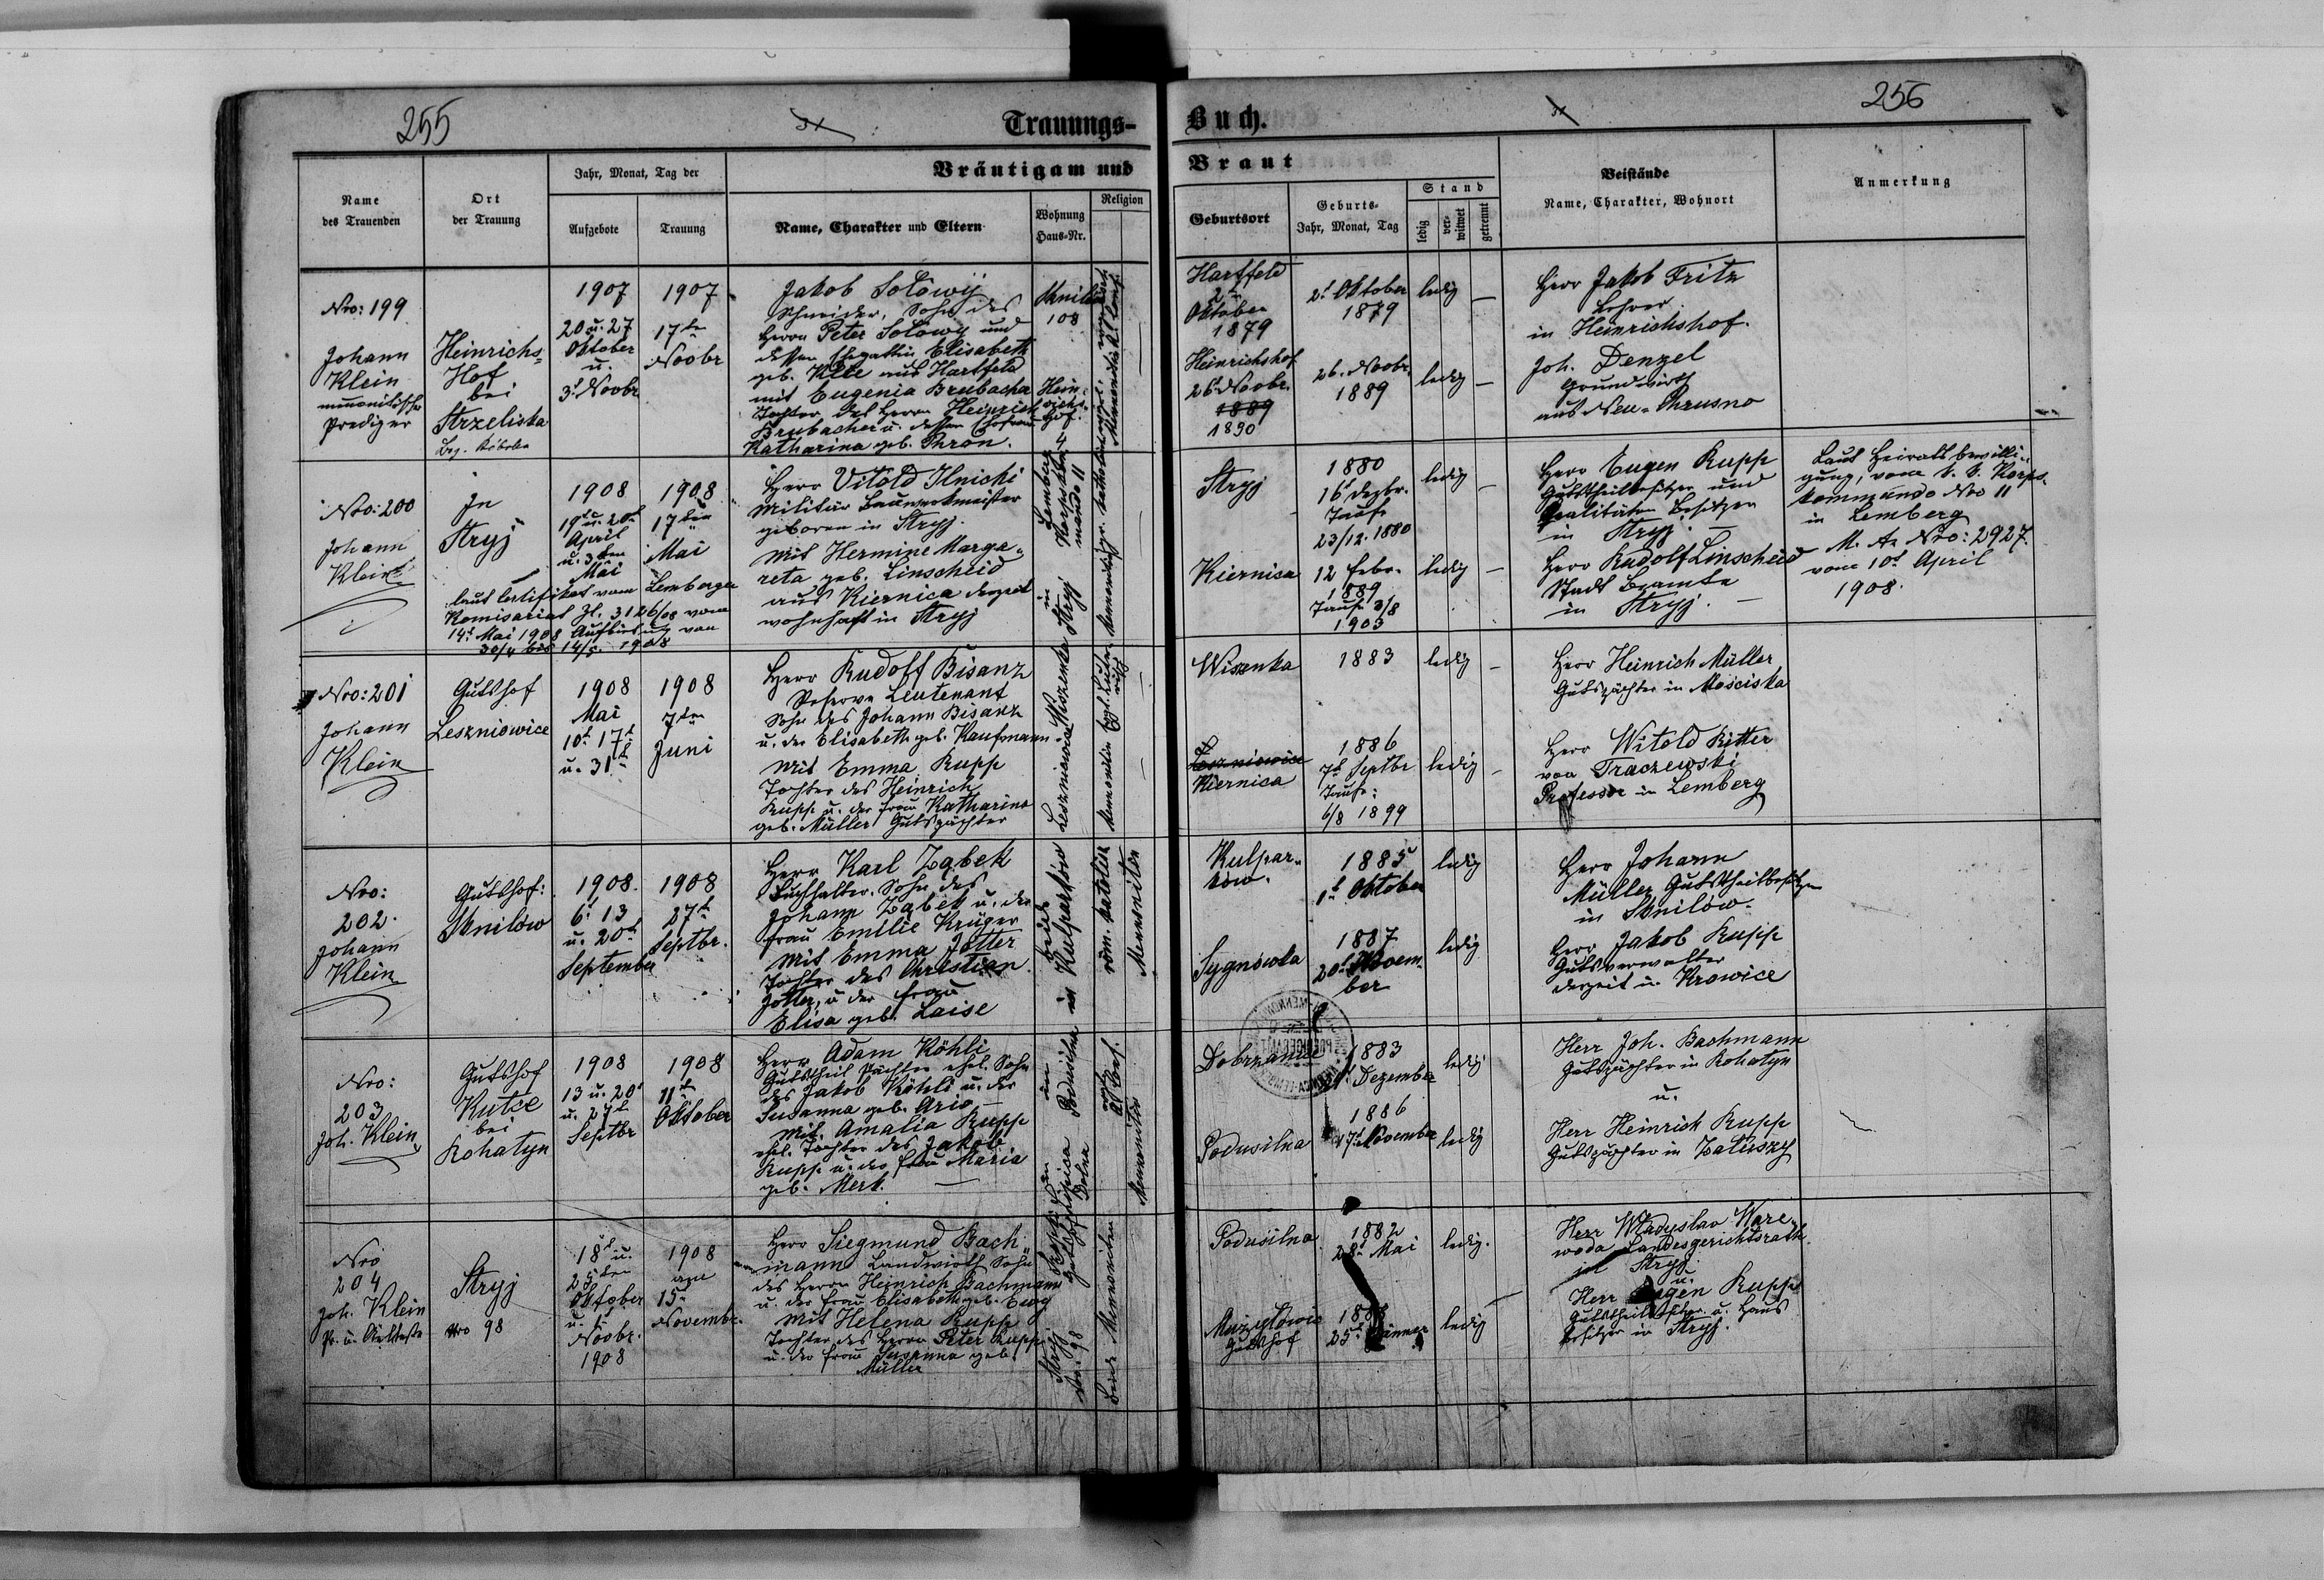 255
Trauungs-
Buch.
256
Name
des Trauenden
Ort
der Trauung
Jahr, Monat, Tag der
Aufgebote
Trauung
Bräutigam und
Name, Charakter und Eltern
Wohnung
Haus-Nr.
Religion
Braut
Geburtsort
Geburts-
Jahr, Monat, Tag
Stand
ledig
ver-
witwet
getrennt
Beistände
Name, Charakter, Wohnort
Anmerkung
Nro: 199
Johann
Klein
mennonitischer
Prediger
Heinrichs-
Hof
bei
Strzeliska
1907
20 u. 27
Oktober
u.
3t Novbr
1907
17ten
Novbr
Jakob Solowij
Schneider, Sohn des
Herrn Peter Solowy und
dessen Ehgattin Elisabeth
geb. Klee aus Hartfeld
mit Eugenia Brubacher
Tochter des Herrn Heinrich
Brubacher u. dessen Ehefrau
Katharina geb. Thron.
108
Hein-
richs-
hof
4
Hartfeld
2t
Oktober
1879
2t Oktober
1879
ledig
Heinrichshof
26t Novbr.
1889
1890
26. Novbr.
1889
ledig
Herr Jakob Fritz
Lehrer
in Heinrichshof.
Joh. Denzel
Grundwirth
aus Neu-Chrusno
Nro: 200
Johann
Klein
In
Stryj
1908
19t u. 20t
April
u. 3ten
Mai
1908
17ten
Mai
laut Certifikat vom Lemberger
Komisariat Zl. 3126/08 vom
14t Mai 1908 Aufbietung von
30/4 bis 14/5. 1908
Herr Vitold Ilnicki
Militär Bauwerkmeister
geboren in Stryj.
mit Hermine Marga-
reta geb. Linscheid
aus Kiernica derzeit
wohnhaft in Stryj
Lemberg
Korpskom-
mando 11
in
Stryj
Stryj
1880
16t Dezbr.
Taufe
23/12. 1880
ledig
Kiernisa
12 Febr.
1889
Taufe 3/8
1903
ledig
Herr Eugen Rupp
Gutstheilbesitzer und
Realitäten Besitzer
in Stryj
Herr Rudolf Linscheid
Stadt Beamte
in Stryj.
Laut Heiratsbewilli-
gung, vom k. k. Korps-
kommando Nro 11
in Lemberg
M. A. Nro: 2927.
vom 10t April
1908.
Nro: 201
Johann
Klein
Gutshof
Leszniowice
1908
Mai
10t 17t
u. 31t
1908
7ten
Juni
Herr Rudolf Bisanz
Reserve Leutenant
Sohn des Johann Bisanz
u. der Elisabeth geb. Kaufmann.
mit Emma Rupp
Tochter des Heinrich
Rupp u. der Frau Katharina
geb. Müller Gutspächter
Wiszenka
Leszniowice
Wiszenka
1883
ledig
Leszniowice
Kiernica
1886
7t Septbr
Taufe:
6/8 1899
ledig
Herr Heinrich Müller
Gutspächter in Mosciska
Herr Witold Ritter
von Traczewski
Professor in Lemberg
Nro:
202.
Johann
Klein
Gutshof:
Sknilow
1908.
6t 13
u. 20t
September
1908
27t
Septbr.
Herr Karl Ząbek
Buchhalter. Sohn des
Johann Ząbek u. der
Frau Emilie Krüger
mit Emma Jotter
Tochter des Christian
Jotter, u. der Frau
Elisa geb. Laise
beide
in Kulparkow
röm. katolisch
Mennonitin
Kulpar-
kow.
1885
1t Oktober
ledig
Sygnowka
1887
20t Novem-
ber
ledig
Herr Johann
Müller Gutstheilbesitzer
in Sknilow.
Herr Jakob Rupp
Gutsverwalter
derzeit in Krowice
Nro:
203
Joh. Klein
Gutshof
Kutce
bei
Rohatyn
1908
13 u. 20t
u. 27t
Septbr
1908
11t
Oktober
Herr Adam Köhli
Gutstheil Pächter ehel. Sohn
des Jakob Köhli u. der
Susanna geb. Ario
mit Amalia Rupp
ehel. Tochter des Jakob
Rupp u. der Frau Maria
geb. Merk.
in
Podusilna
Mennonitin
Dobrzanica
1883
Dezember
ledig
Podusilna
1886
17t November
ledig
Herr Joh. Bachmann
Gutspächter in Rohatyn
u.
Herr Heinrich Rupp
Gutspächter in Zatuszy
Nro
204
Joh. Klein
Pr. u. Aelteste
Stryj
Nro 98
18t u.
25ten
Oktober
u. 1t
Novbr.
1908
1908
am
15t
Novembr.
Herr Siegmund Bach-
mann Landwirth Sohn
des Herrn Heinrich Bachmann
u. der Frau Elisabeth geb. Ewy
mit Helena Rupp
Tochter des Herrn Peter Rupp
u. der Frau Susanna geb.
Müller
Stryj
Nro. 98
beide Mennoniten
Podusilna
1882
28t Mai
ledig.
Muzylowic
Gutshof
25t Jänner
ledig
Herr Wladyslav Ware-
woda Landesgerichtsrath
in Stryj.
u.
Herr Eugen Rupp
Gutstheilbesitzer u. Haus
besitzer in Stryj.